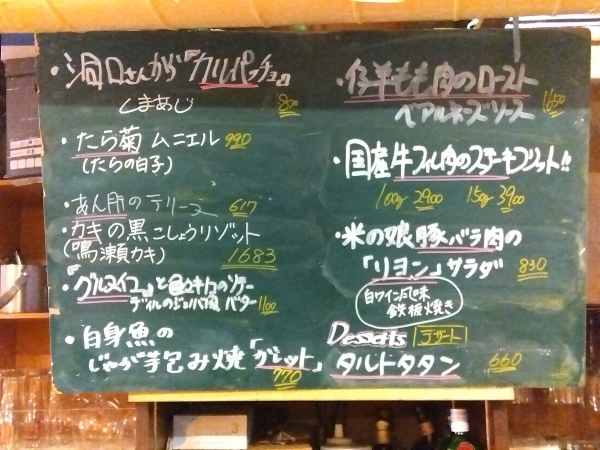 ・洞口さんが『カルパッチョ』
しまあじ 800
・たら菊 ムニエル 990
(たらの白子)
・あん肝のテリーヌ 617
・カキの黒こしょうリゾット
(鳴瀬カキ) 1683
・『グルヌイユ』と
ディルのジェノバ風 バター 1100
・白身魚の
じゃが芋包み焼「ガレット」
770
・仔羊もも肉のロースト
ベアルネーズソース 1650
・国産牛フィレ肉のステーキフリット!!
100g 2900 150g 3900
・米の娘豚バラ肉の
「リヨン」サラダ 830
白ワイン風味
鉄板焼き
Desserts デザート
タルトタタン 660